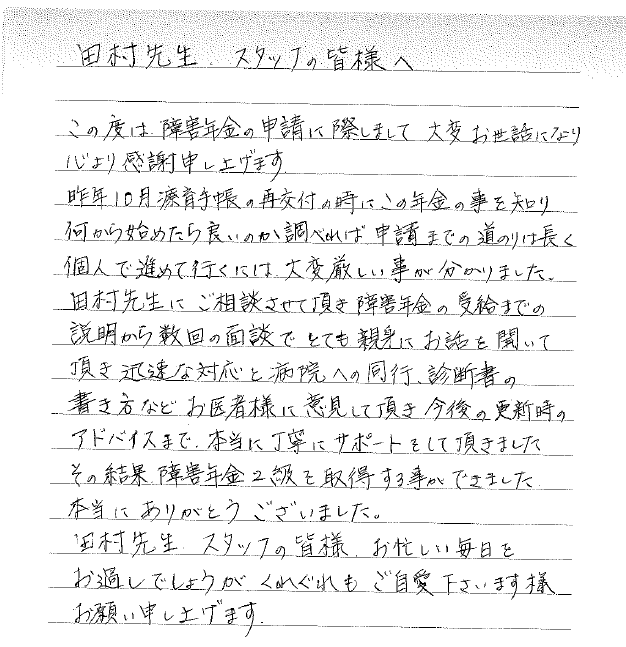 田村先生、スタッフの皆様へ
この度は障害年金の申請に際しまして 大変お世話になり
心より感謝申し上げます
昨年10月療育手帳の再交付の時にこの年金の事を知り
何から始めたら良いのか調べれば申請までの道のりは長く
個人で進めて行くには大変厳しい事が分かりました、
田村先生にご相談させて頂き障害年金の受給までの
説明から数回の面談でとても親身にお話を聞いて
頂き迅速な対応と病院への同行、診断書の
書き方などお医者様に意見して頂き今後の更新時の
アドバイスまで、本当に丁寧にサポートをして頂きました
その結果障害年金2級を取得する事ができました
本当にありがとうございました。
田村先生、スタッフの皆様、お忙しい毎日を
お過しでしょうがくれぐれもご自愛下さいます様
お願い申し上げます.